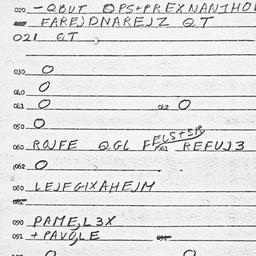 020 -QBUT OPS+PREXNAN1HO
FAREJDNAREJZ QT
021 QT
030 O
040 O
041 O 042 O
050 O
060 ROJFE QGL REFUJ3
062 O
080 LEJFGIXAHEJM
090 PAMEJL3X
091 +PAVOLE